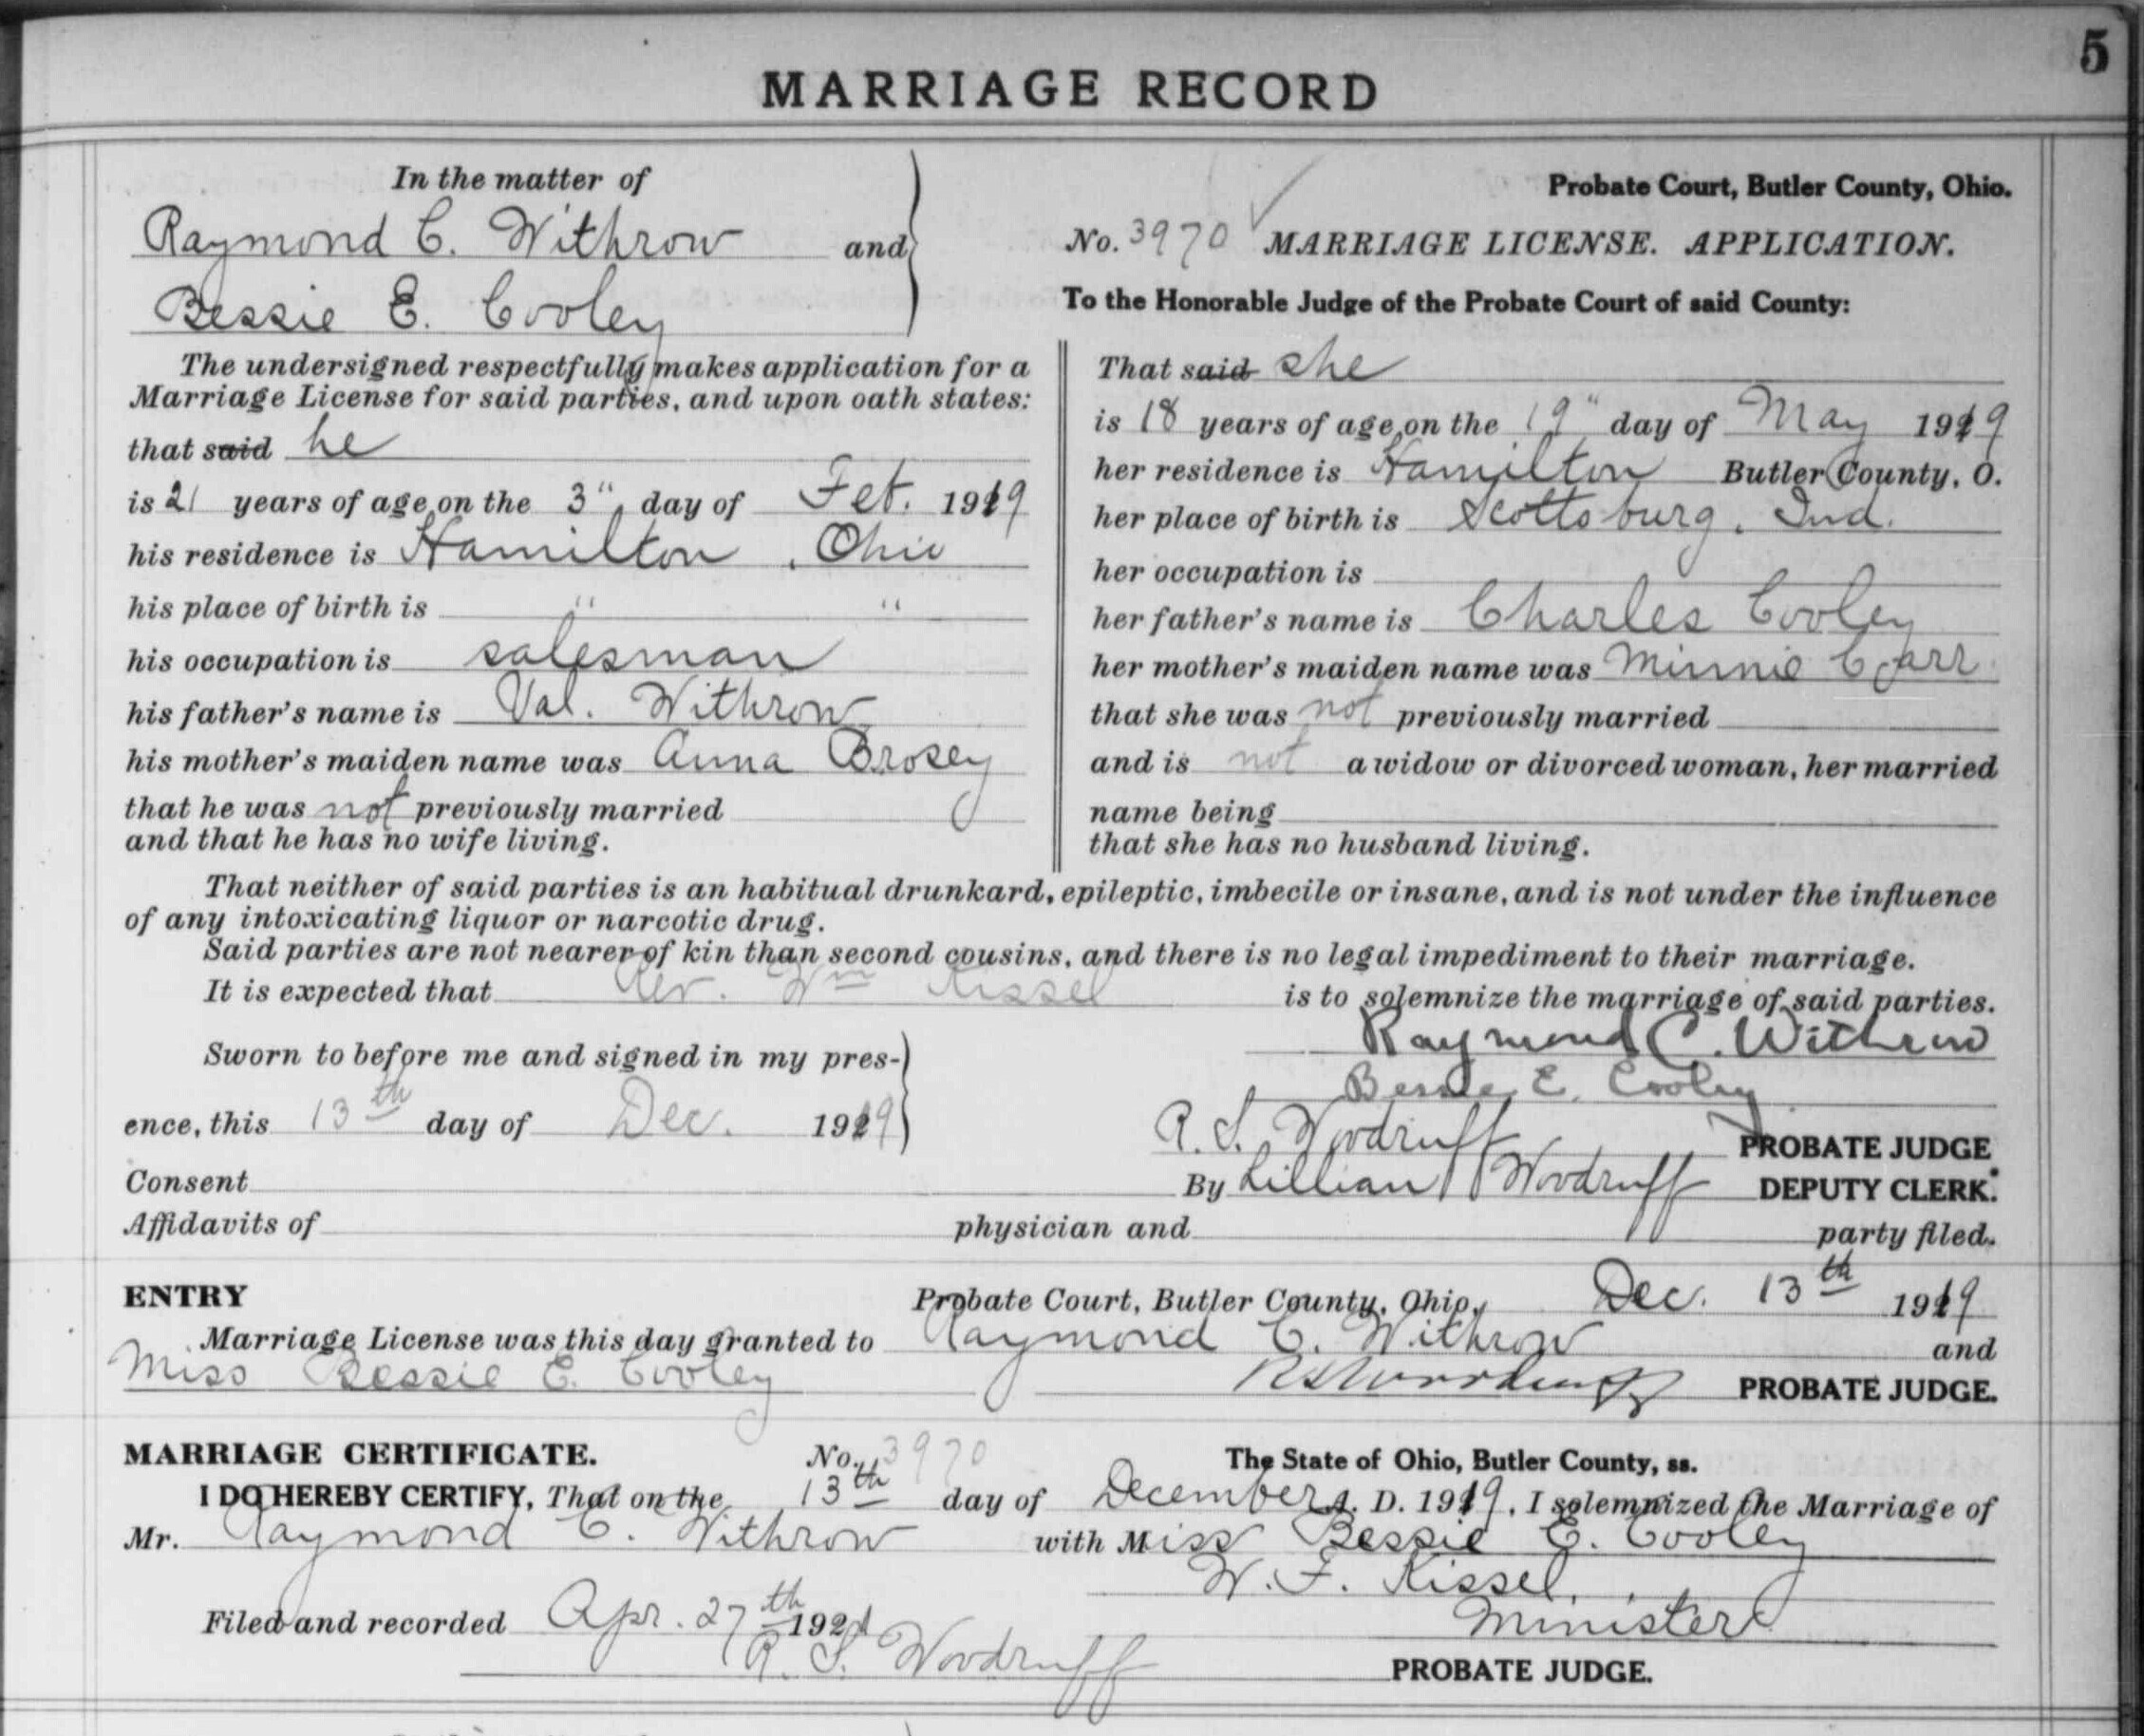 5
MARRIAGE RECORD
In the matter of
Raymond C. Withrow and
Bessie E. Cooley
Probate Court, Butler County, Ohio.
No. 3970 MARRIAGE LICENSE. APPLICATION.
To the Honorable Judge of the Probate Court of said County:
The undersigned respectfully makes application for a
Marriage License for said parties, and upon oath states:
that said he
is 21 years of age on the 3" day of Feb. 1919
his residence is Hamilton, Ohio
his place of birth is " "
his occupation is salesman
his father's name is Val. Withrow
his mother's maiden name was Anna Brosey
that he was not previously married
and that he has no wife living.
That said she
is 18 years of age on the 19" day of May 1919
her residence is Hamilton Butler County, O.
her place of birth is Scottsburg, Ind.
her occupation is
her father's name is Charles Cooley
her mother's maiden name was Minnie Carr
that she was not previously married
and is not a widow or divorced woman, her married
name being
that she has no husband living.
That neither of said parties is an habitual drunkard, epileptic, imbecile or insane, and is not under the influence
of any intoxicating liquor or narcotic drug.
Said parties are not nearer of kin than second cousins, and there is no legal impediment to their marriage.
It is expected that Rev. Wm Kissel is to solemnize the marriage of said parties.
Raymond C. Withrow
Bessie E. Cooley
Sworn to before me and signed in my pres-
ence, this 13th day of Dec. 1919
R. S. Woodruff PROBATE JUDGE
Consent By Lillian Woodruff DEPUTY CLERK.
Affidavits of physician and party filed.
ENTRY Probate Court, Butler County, Ohio, Dec. 13th 1919
Marriage License was this day granted to Raymond C. Withrow and
Miss Bessie E. Cooley RSWoodruff PROBATE JUDGE.
MARRIAGE CERTIFICATE. No. 3970 The State of Ohio, Butler County, ss.
I DO HEREBY CERTIFY, That on the 13th day of December A. D. 1919, I solemnized the Marriage of
Mr. Raymond C. Withrow with Miss Bessie E. Cooley
W. F. Kissel,
Minister
Filed and recorded Apr. 27th 192
R. S. Woodruff PROBATE JUDGE.